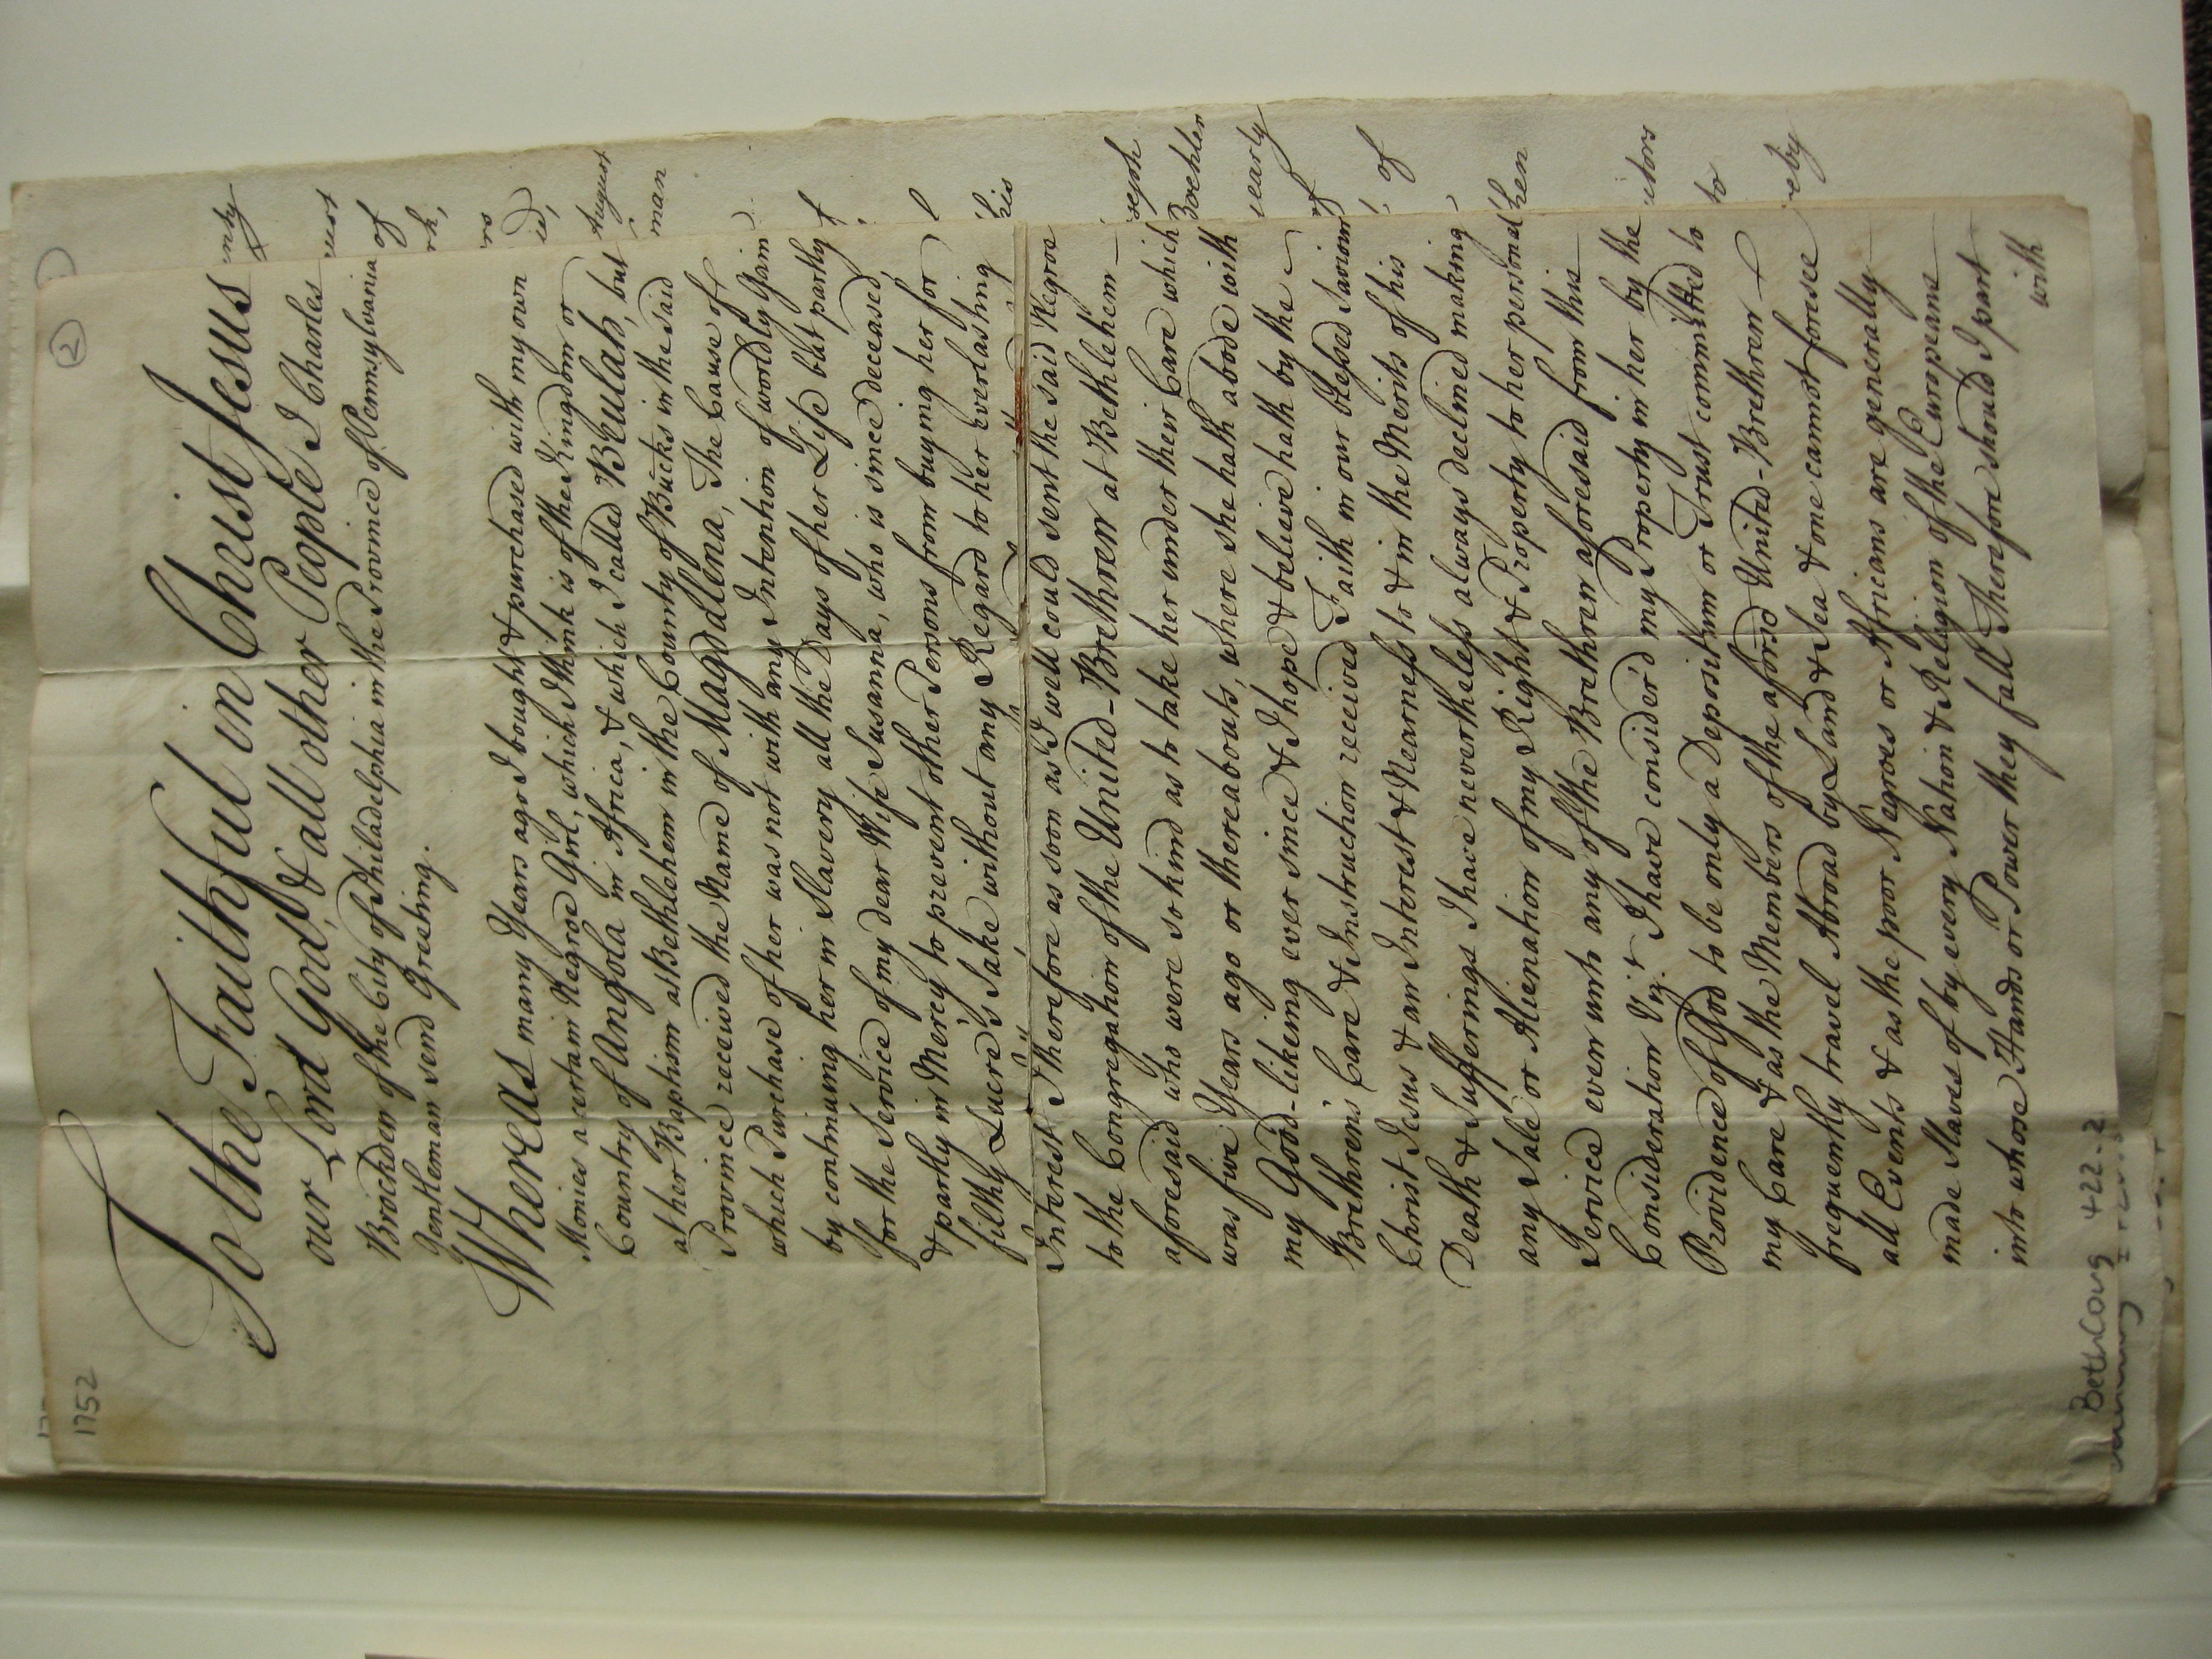 1752
2
To the Faithful in Christ Jesus
our Lord God, & all other People I Charles
Brockden of the City of Philadelphia in the Province of Pennsylvania
Gentleman send Greeting.
Whereas many Years ago I bought & purchased with my own
Monies a certain Negroe Girl, which I think is of the Kingdom or
Country of Angola in Africa, & which I called Beulah, but
at her Baptism at Bethlehem in the County of Bucks in the said
Province received the Name of Magdalena, The Cause of
which Purchase of her was not with any Intention of worldly Gain
by continuing her in Slavery all the Days of her Life but partly
for the Service of my dear Wife Susanna, who is since deceased,
& partly in Mercy to prevent other Persons from buying her for
filthy Lucre's Sake without any Regard to her everlasting
Interest I therefore as soon as I well could sent the said Negroe
to the Congregation of the United-Brethren at Bethlehem
aforesaid who were so kind as to take her under their Care which
was five Years ago or thereabouts, where she hath abode with
my Good-likeing ever since & I hope & believe hath by the
Brethrens Care & Instruction received Faith in our blessed Saviour
Christ Jesus & an Interest & Nearness to & in the Merits of his
Death & Sufferings I have nevertheless always declined making
any Sale or Alienation of my Right & Property to her personal
Service even unto any of the Brethren aforesaid from this
Consideration Vizt. I have consider'd my Property in her by the
Providence of God to be only a Depositum or Trust committed to
my Care & as the Members of the aforsd United-Brethren
frequently travel Abroad by Land & Sea & one cannot foresee
all Events & as the poor Negroes or Africans are generally
made Slaves of by every Nation & Religion of the Europeans
into whose Hands or Power they fall Therefore should I part
with
BethCong 422.2
nty
of
rk,
August
man
his
seph
Boehler
early
of
hen
utors
to
reby